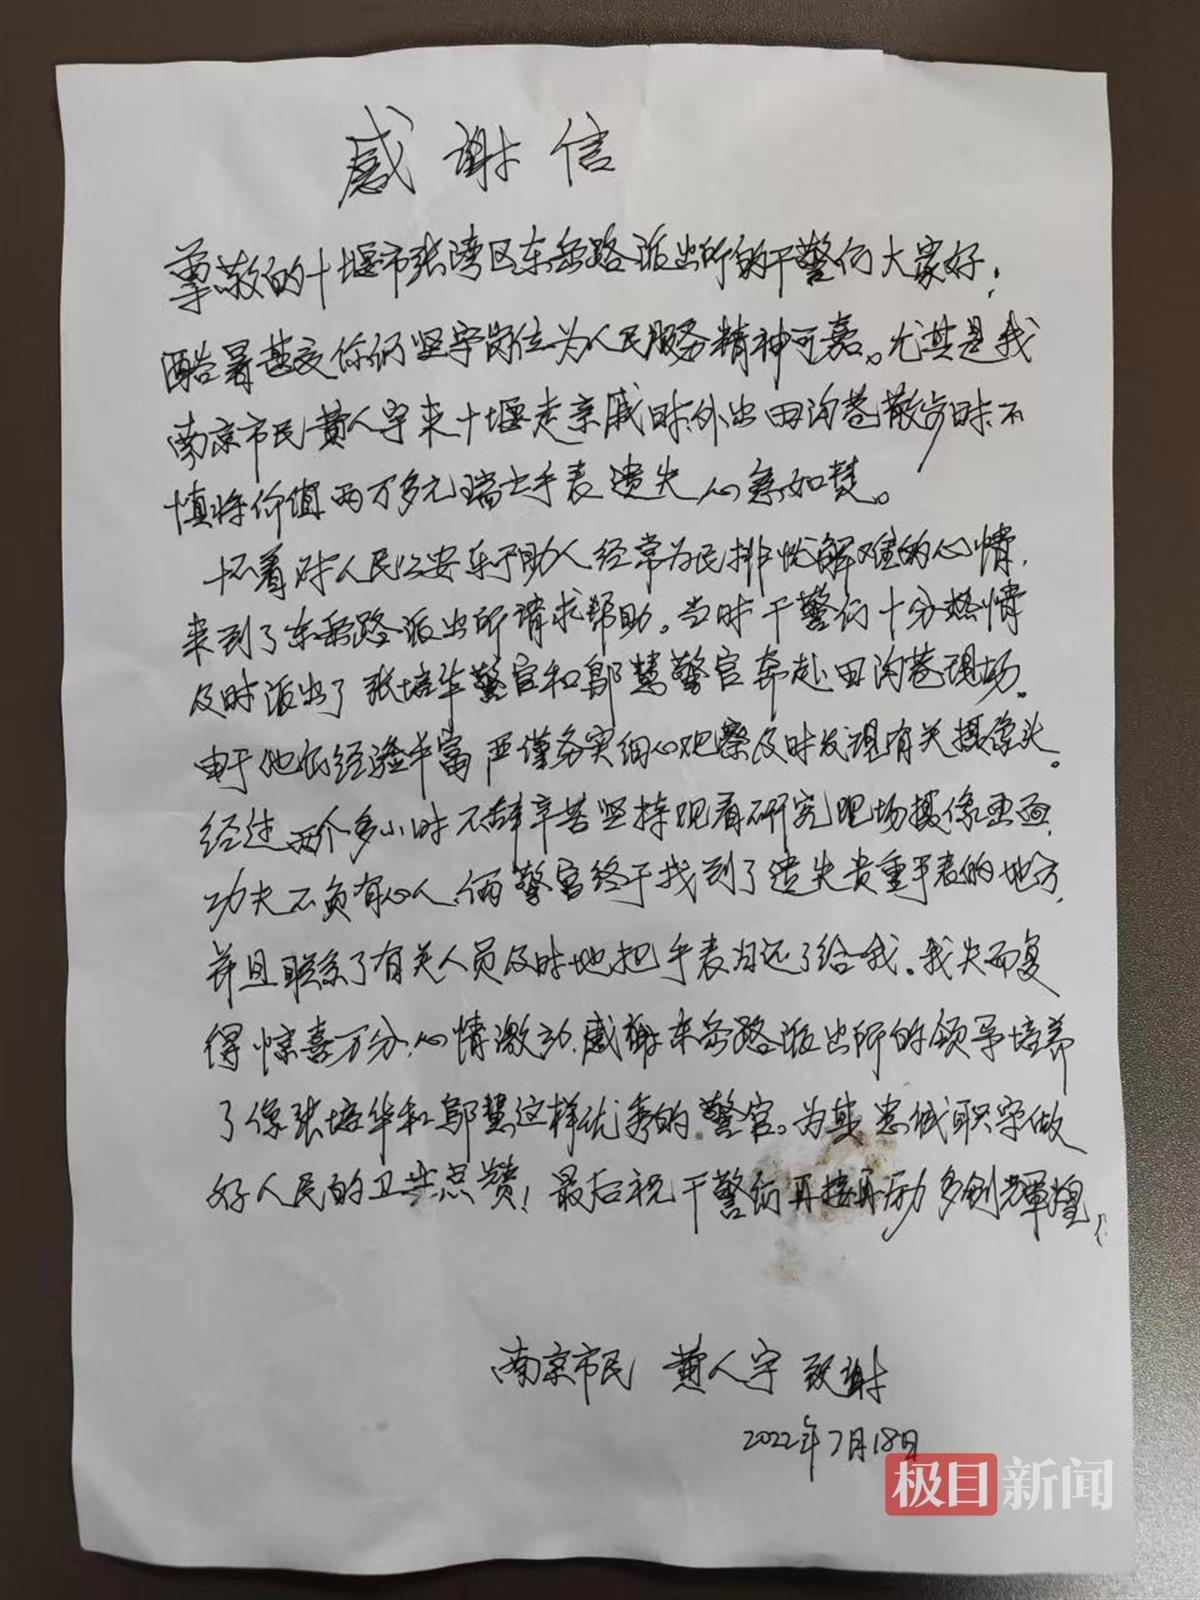 感谢信
尊敬的十堰市张湾区东岳路派出所的干警们大家好，
酷暑甚夜你们坚守岗位为人民服务精神可嘉。尤其是我
南京市民黄人宇来十堰走亲戚时，外出田沟巷散步时，不
慎将价值两万多元瑞士手表遗失，心急如焚。
怀着对人民公安乐于助人经常为民排忧解难的心情，
来到了东岳路派出所请求帮助。当时干警们十分热情
及时派出了张培华警官和邬慧警官奔赴田沟巷现场。
由于他们经验丰富严谨务实细心观察及时发现有关摄像头。
经过两个多小时不辞辛苦坚持观看研究现场摄像画面，
功夫不负有心人，俩警官终于找到了遗失贵重手表的地方，
并且联系了有关人员及时地把手表归还了给我。我失而复
得惊喜万分，心情激动，感谢东岳路派出所的领导培养
了像张培华和邬慧这样优秀的警官。为其忠诚职守做
好人民的卫士点赞！最后祝干警们再接再励多创辉煌。
南京市民 黄人宇 致谢
2022年7月18日
极目新闻